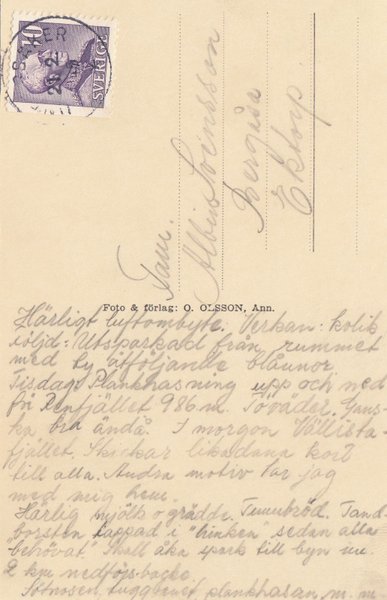 10
SVERIGE
Fam.
Albin Svensson
Bergåsa
Ektorp.
Foto & förlag: O. OLSSON, Ann.
Härligt luftombyte. Verkan: kolik
följd: Utsparkad från rummet
med ty åtföljande blånor
Tisdag: Plankhasning upp och ned
för Renfjället 986 m. Töväder. Gans-
ka bra ändå. I morgon Vällista-
fjället. Skickar likadana kort
till alla. Andra motiv tar jag
med mig hem.
Härlig mjölk o grädde. Tunnbröd. Tand-
borsten tappad i "hinken" sedan alla
"behövat". Skall åka spark till byn nu.
2 km nedförsbacke.
Sotnosen, tuggbenet, plankhasan, m. m.